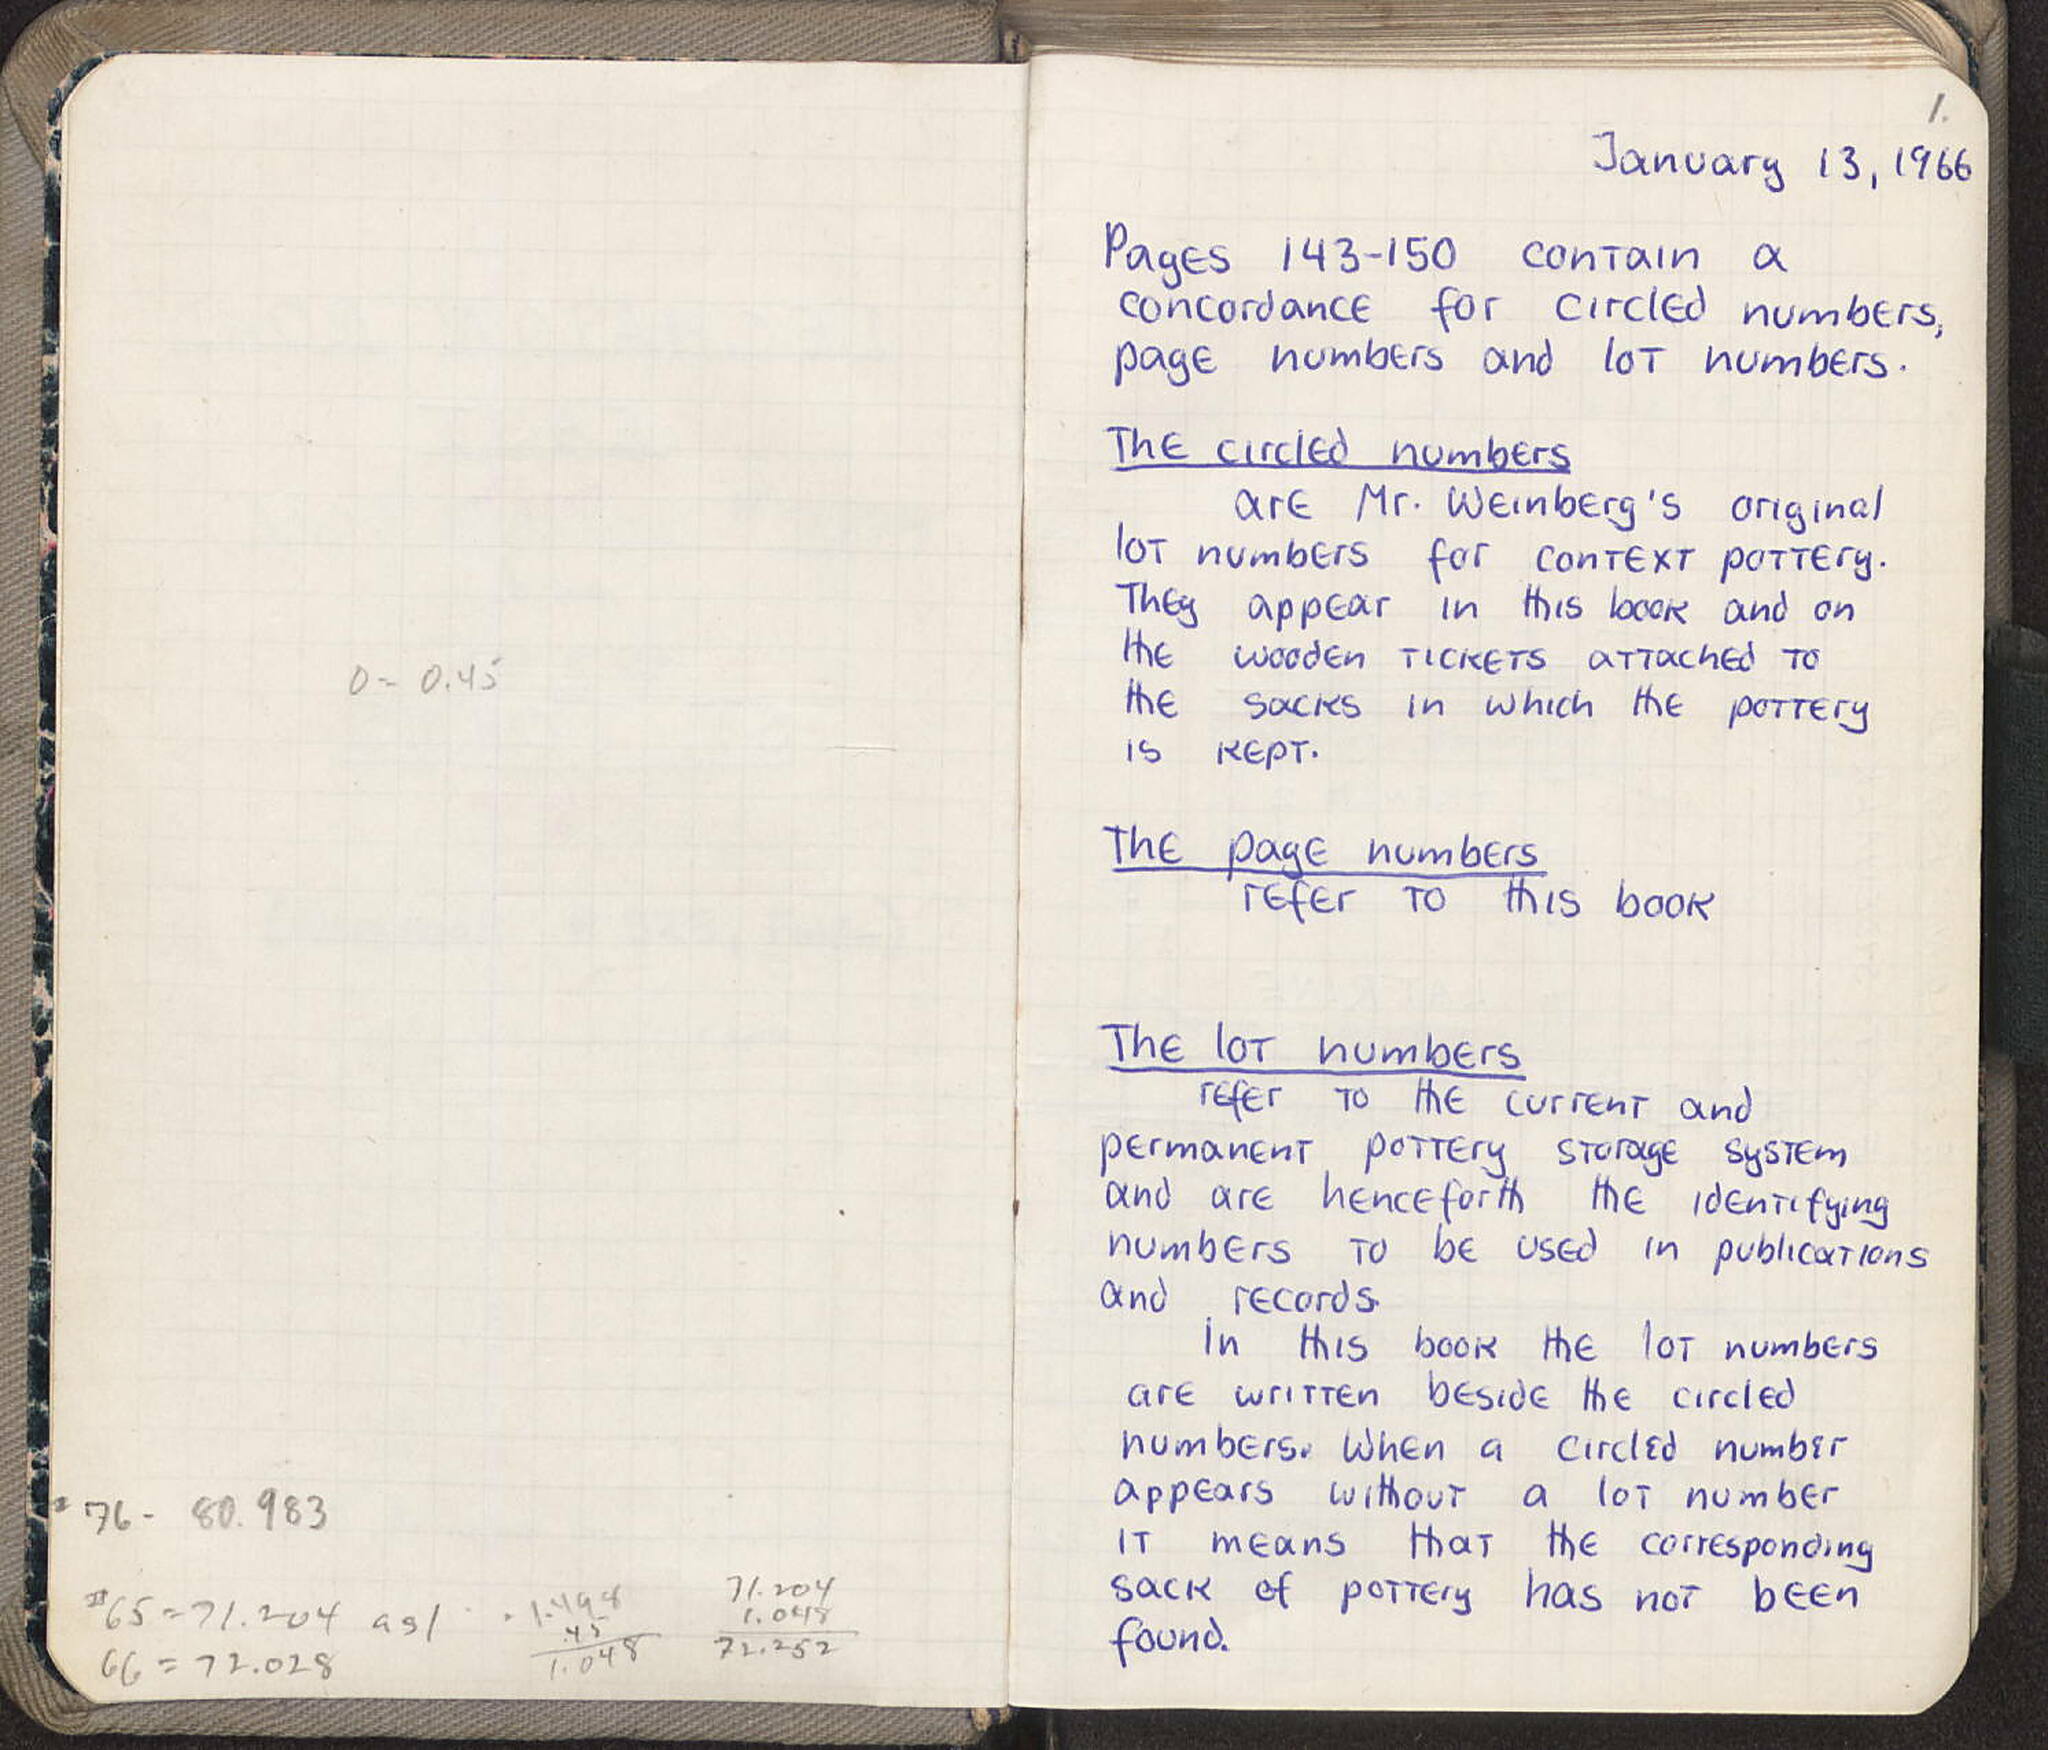 0 - 0.45
# 76 - 80.983
# 65 = 71.204 asl
66 = 72.028
1.498
.45
1.048
71.204
1.048
72.252
1.
January 13, 1966
Pages 143-150 contain a
concordance for circled numbers,
page numbers and lot numbers.
The circled numbers
are Mr. Weinberg's original
lot numbers for context pottery.
They appear in this book and on
the wooden tickets attached to
the sacks in which the pottery
is kept.
The page numbers
refer to this book
The lot numbers
refer to the current and
permanent pottery storage system
and are henceforth the identifying
numbers to be used in publications
and records.
In this book the lot numbers
are written beside the circled
numbers. When a circled number
appears without a lot number
it means that the corresponding
sack of pottery has not been
found.